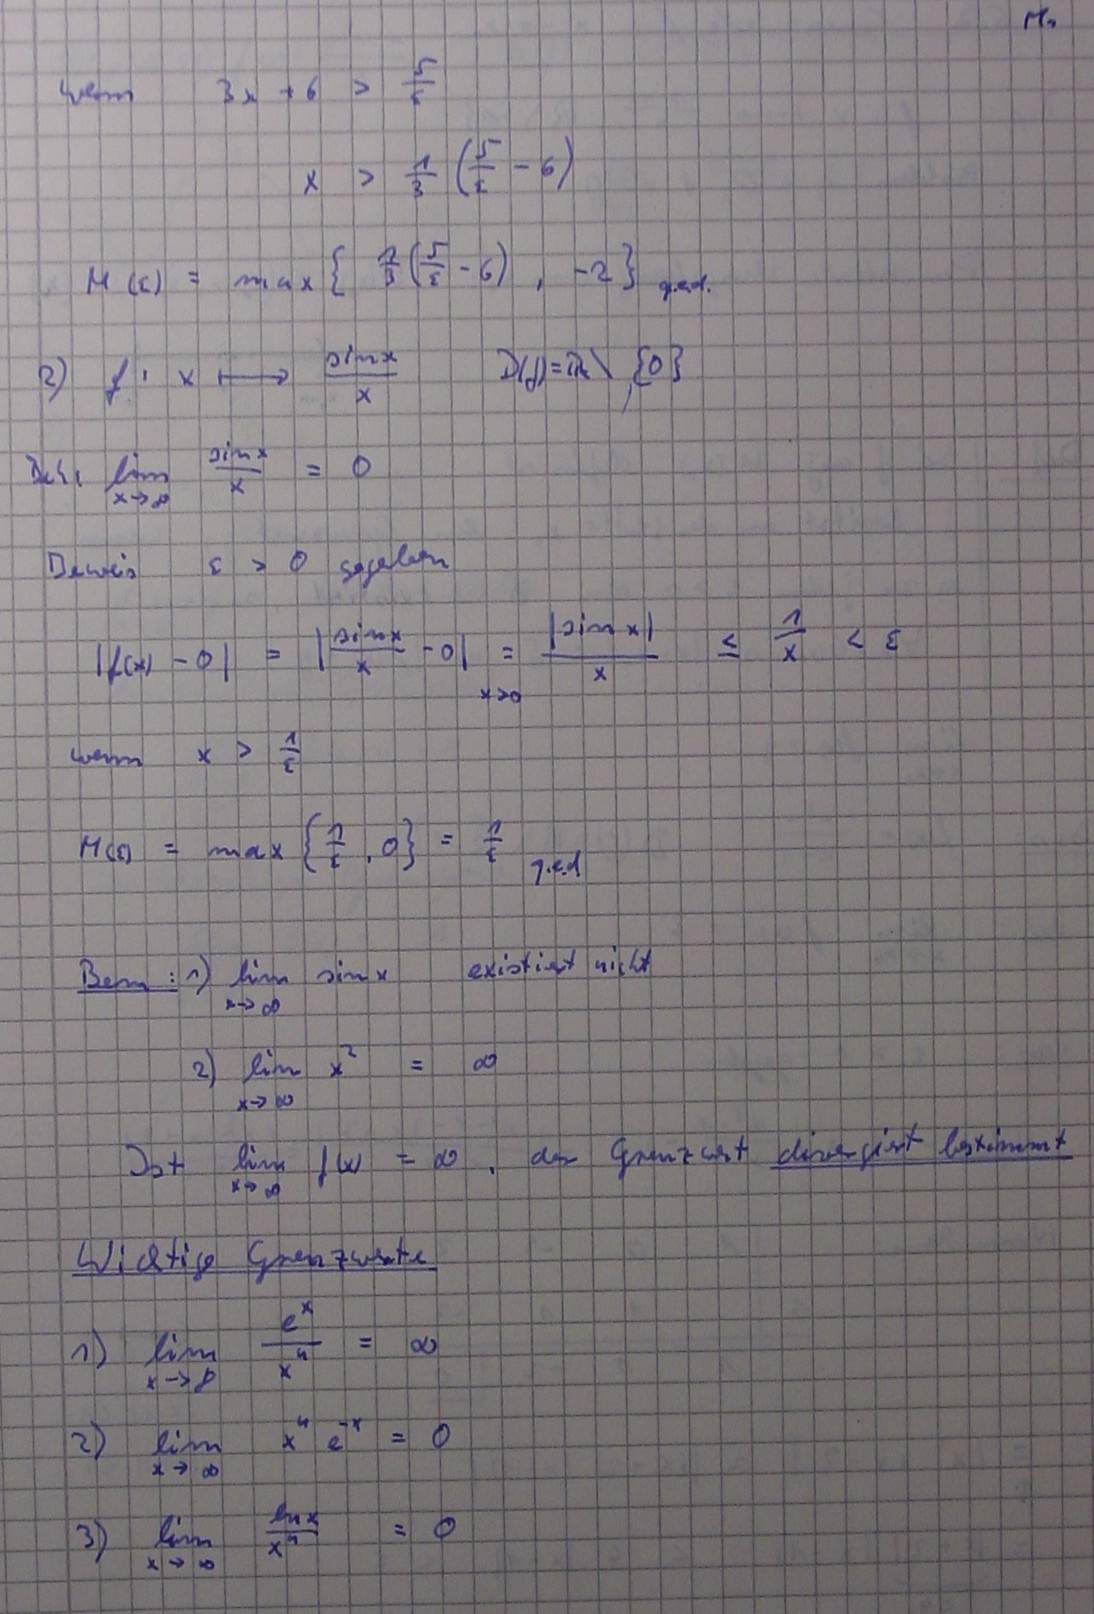 wenn 3x + 6 > 5/ε
x > 1/3 (5/ε - 6)
M(ε) = max{ 1/3 (5/ε - 6) , -2} q.e.d.
2) f: x ↦ sinx/x D(f) = ℝ\{0}
Beh: lim x→∞ sinx/x = 0
Beweis ε > 0 gegeben
|f(x) - 0| = |sinx/x - 0| = x>0 |sin x|/x ≤ 1/x < ε
wenn x > 1/ε
M(ε) = max {1/ε , 0} = 1/ε q.e.d
Bem: 1) lim x→∞ sinx existiert nicht
2) lim x→∞ x² = ∞
Ist lim x→∞ f(x) = ∞, der Grenzwert divergiert bestimmt
Wichtige Grenzwerte
1) lim x→∞ eˣ/xⁿ = ∞
2) lim x→∞ xⁿ e⁻ˣ = 0
3) lim x→∞ lnx/xⁿ = 0